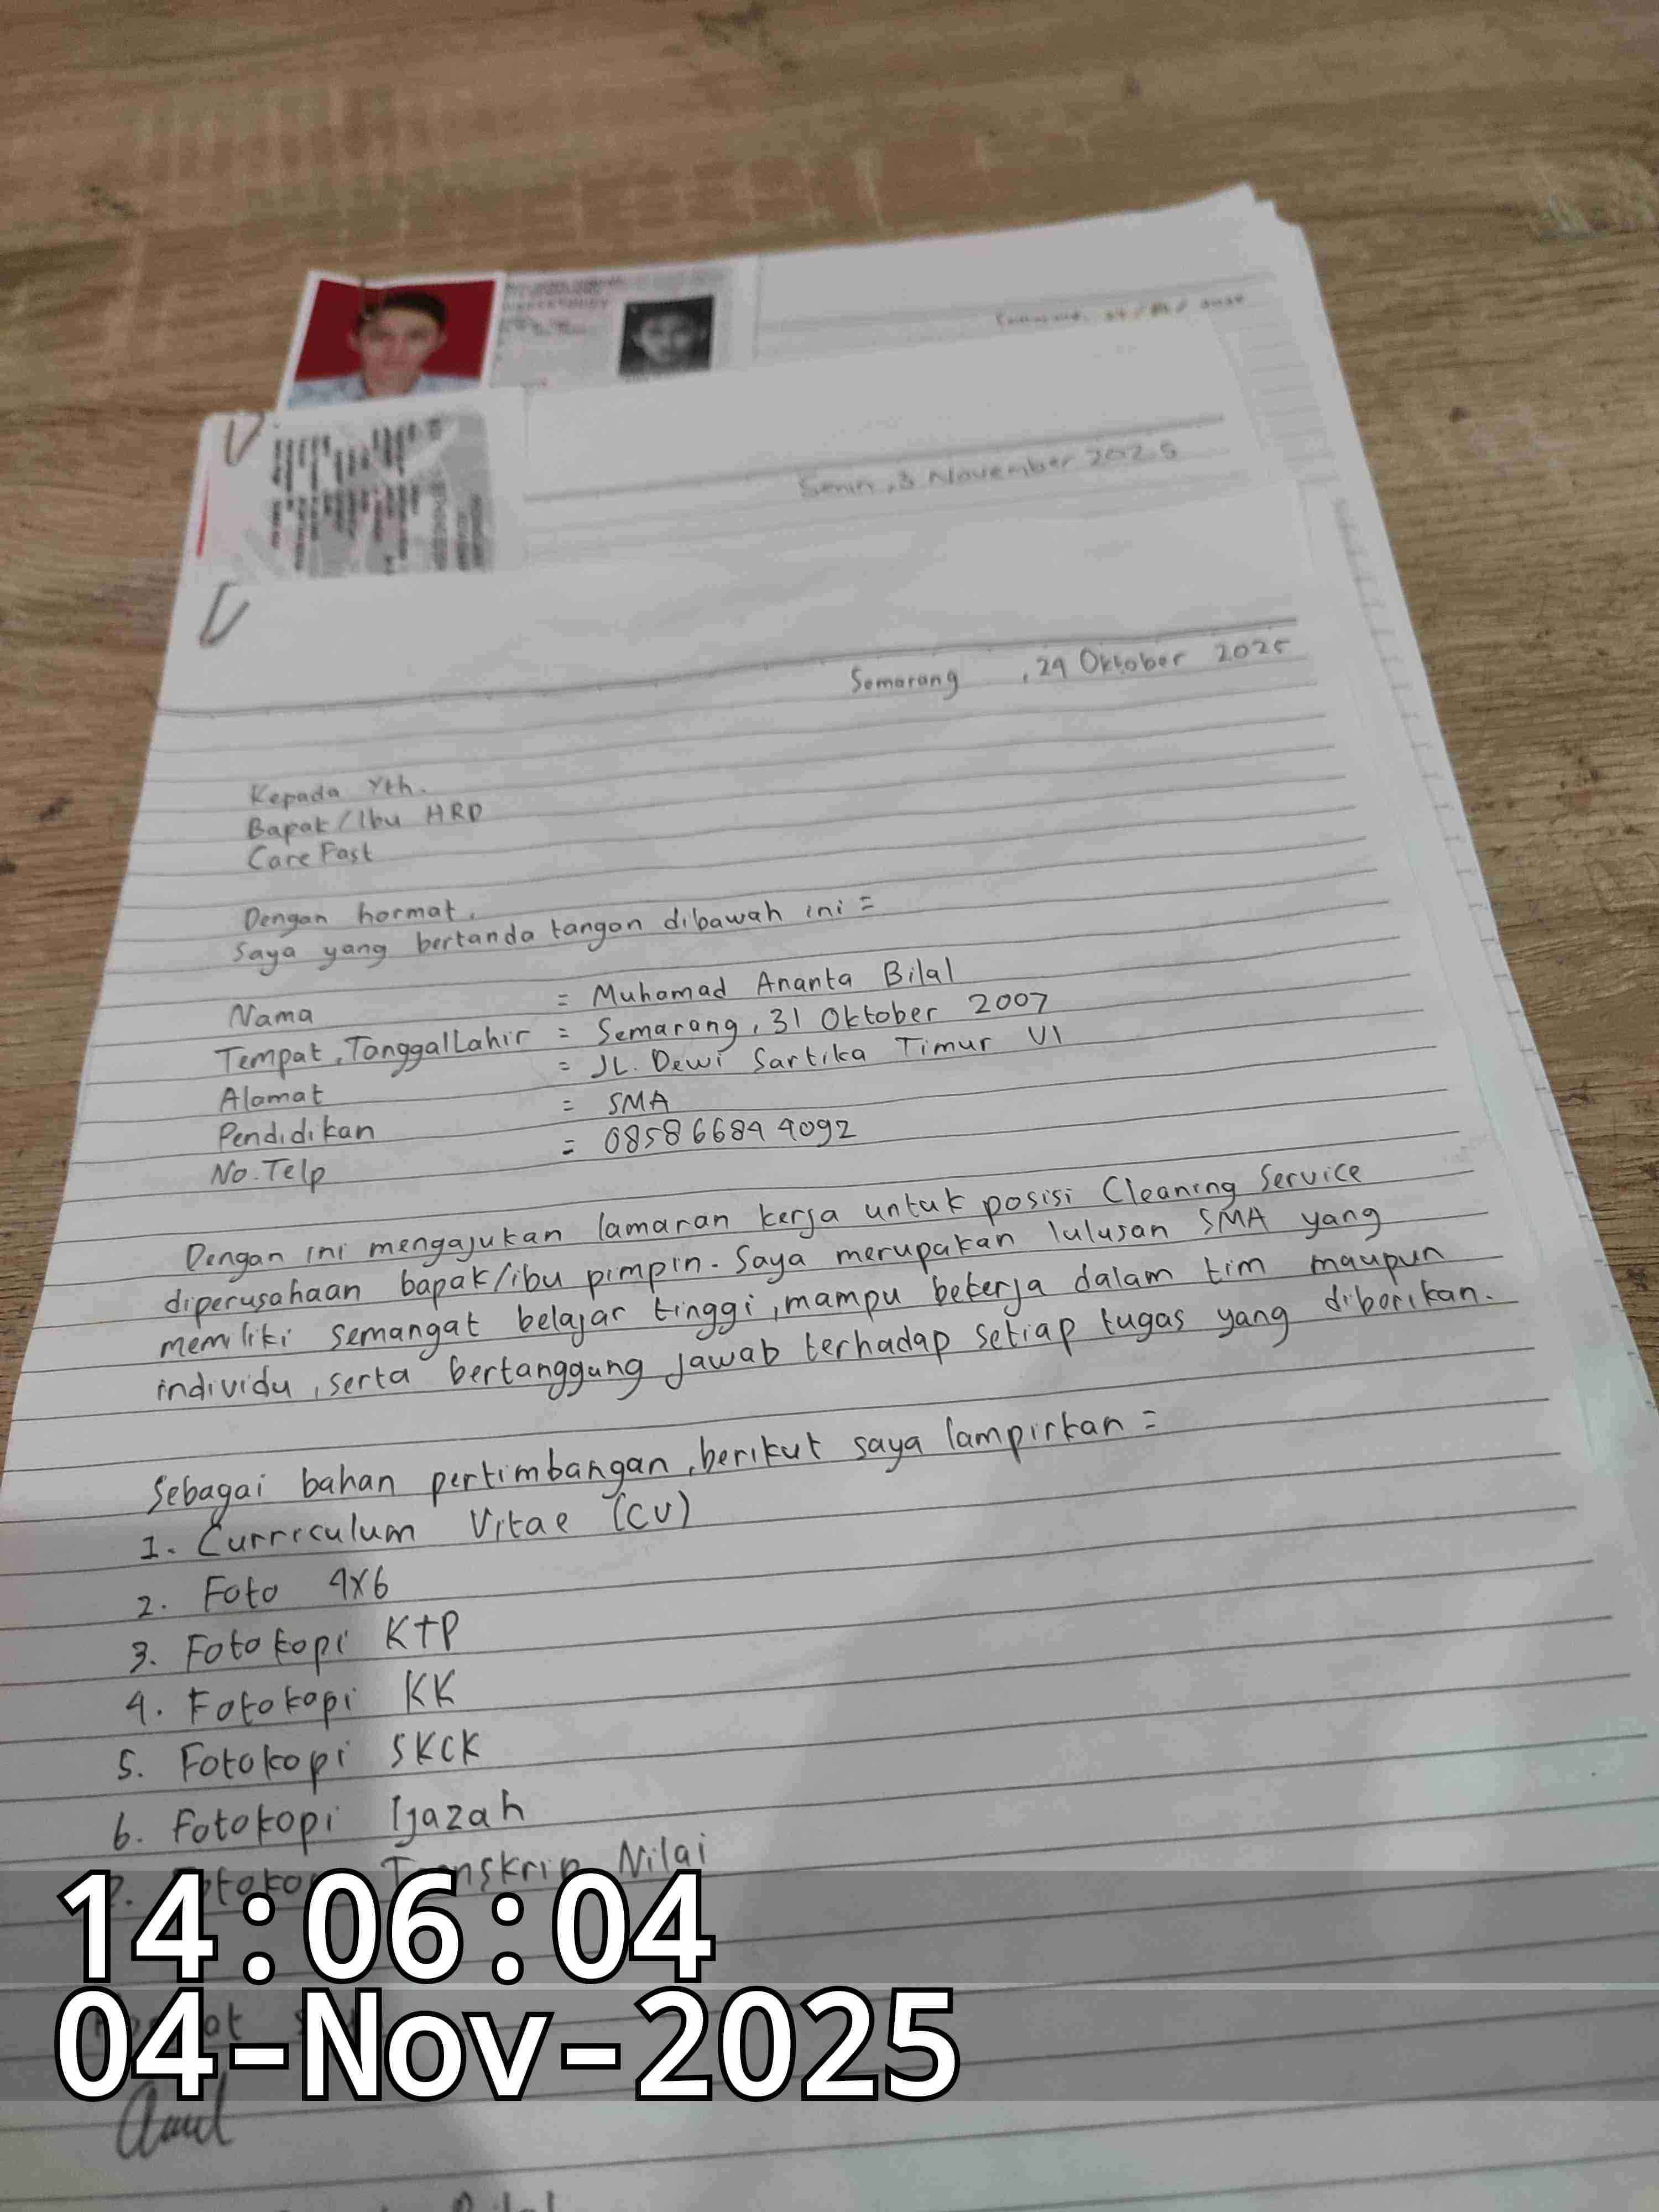 Senin, 3 November 2025
Semarang , 29 Oktober 2025
Kepada Yth.
Bapak/Ibu HRD
Care Fast
Dengan hormat,
Saya yang bertanda tangan dibawah ini =
Nama = Muhamad Ananta Bilal
Tempat, Tanggal Lahir = Semarang, 31 Oktober 2007
Alamat = JL. Dewi Sartika Timur VI
Pendidikan = SMA
No. Telp = 085866844092
Dengan ini mengajukan lamaran kerja untuk posisi Cleaning Service
diperusahaan bapak/ibu pimpin. Saya merupakan lulusan SMA yang
memiliki semangat belajar tinggi, mampu bekerja dalam tim maupun
individu, serta bertanggung jawab terhadap setiap tugas yang diberikan.
Sebagai bahan pertimbangan, berikut saya lampirkan =
1. Curriculum Vitae (CV)
2. Foto 4x6
3. Fotokopi KTP
4. Fotokopi KK
5. Fotokopi SKCK
6. Fotokopi Ijazah
Transkrip Nilai
14:06:04
04-Nov-2025